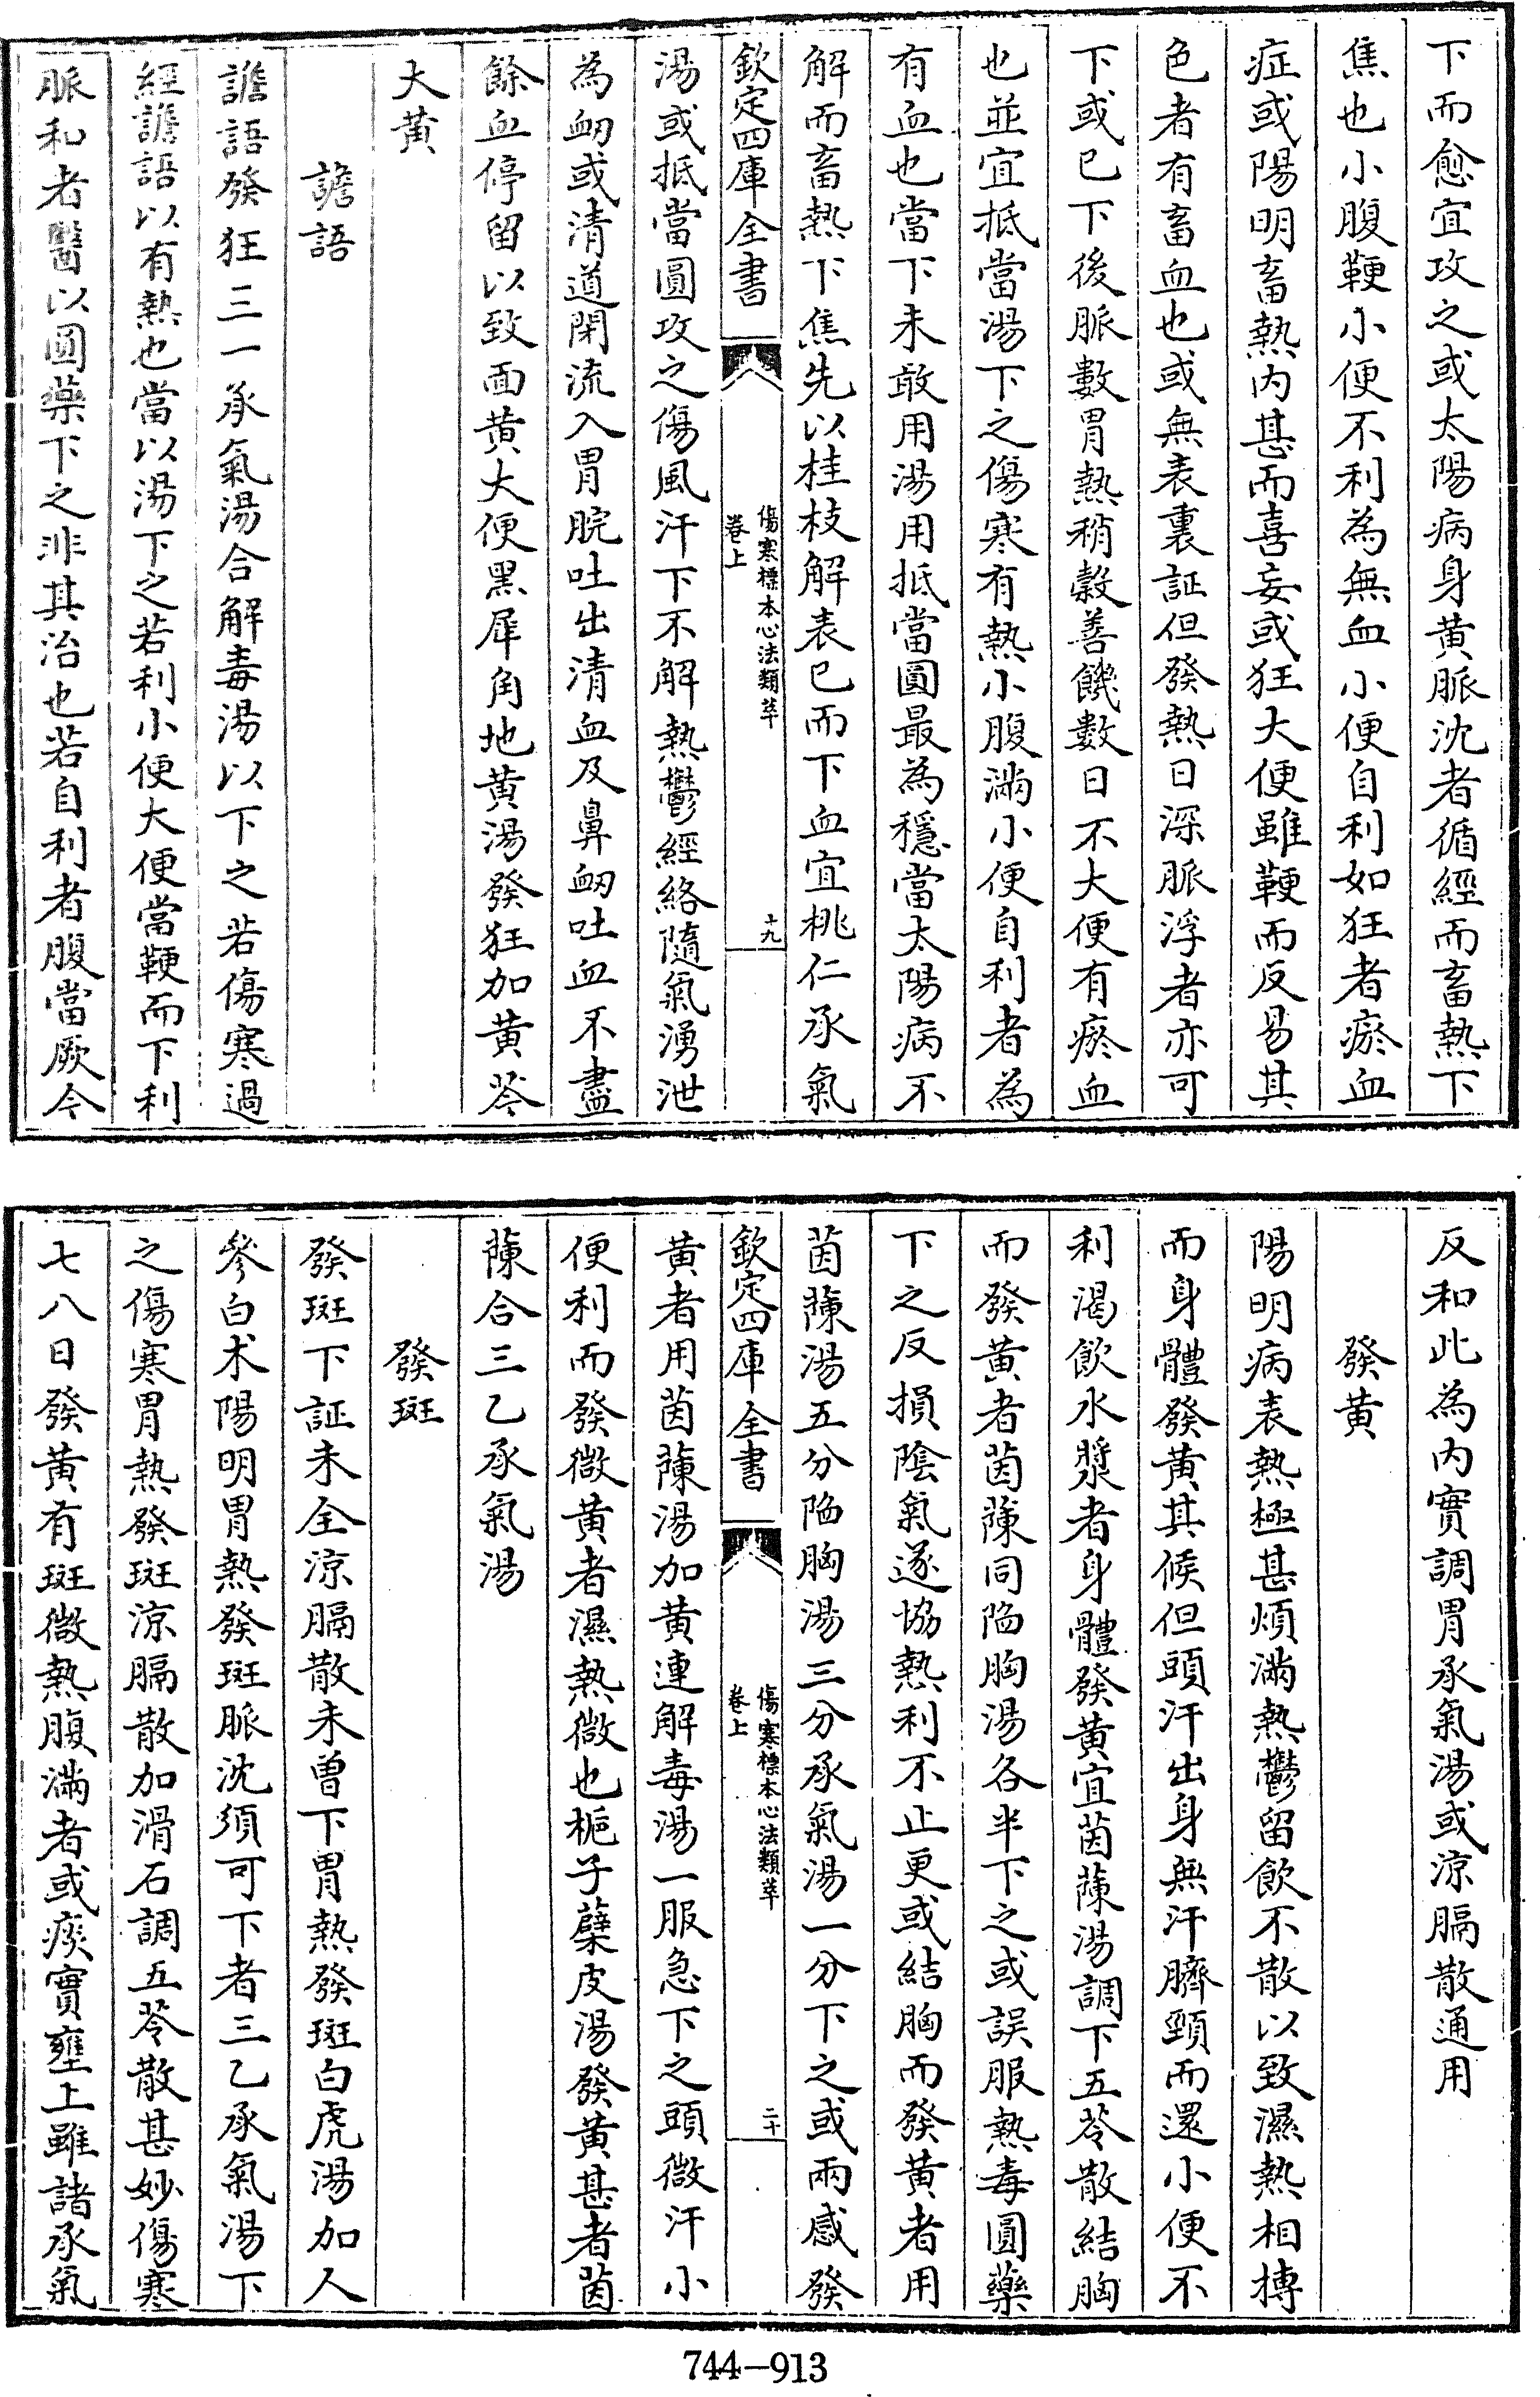 下而愈宜攻之或太陽病身黄脈沈者循經而畜熱下
焦也小腹鞕小便不利為無血小便自利如狂者瘀血
症或陽明畜熱内甚而喜妄或狂大便雖鞕而反易其
色者有畜血也或無表裏証但發熱日深脈浮者亦可
下或已下後脈數胃熱稍穀善饑數日不大便有瘀血
也並宜抵當湯下之傷寒有熱小腹滿小便自利者為
有血也當下未敢用湯用抵當圓最為穩當太陽病不
解而畜熱下焦先以桂枝解表已而下血宜桃仁承氣
欽定四庫全書
傷寒標本心法類萃
卷上
十九
湯或抵當圓攻之傷風汗下不解熱鬱經絡隨氣湧泄
為衂或清道閉流入胃脘吐出清血及鼻衂吐血不盡
餘血停留以致面黄大便黑犀角地黄湯發狂加黄芩
大黄
譫語
譫語發狂三一承氣湯合解毒湯以下之若傷寒過
經譫語以有熱也當以湯下之若利小便大便當鞕而下利
脈和者醫以圓藥下之非其治也若自利者腹當厥今
反和此為内實調胃承氣湯或涼膈散通用
發黄
陽明病表熱極甚煩滿熱鬱留飲不散以致濕熱相搏
而身體發黄其候但頭汗出身無汗臍頸而還小便不
利渴飲水漿者身體發黄宜茵蔯湯調下五苓散結胸
而發黄者茵蔯同陷胸湯各半下之或誤服熱毒圓藥
下之反損陰氣遂協熱利不止更或結胸而發黄者用
茵蔯湯五分陷胸湯三分承氣湯一分下之或兩感發
欽定四庫全書
傷寒標本心法類萃
卷上
二十
黄者用茵蔯湯加黄連解毒湯一服急下之頭微汗小
便利而發微黄者濕熱微也梔子蘗皮湯發黄甚者茵
蔯合三乙承氣湯
發斑
發斑下証未全涼膈散未曾下胃熱發斑白虎湯加人
參白术陽明胃熱發斑脈沈須可下者三乙承氣湯下
之傷寒胃熱發斑涼膈散加滑石調五苓散甚妙傷寒
七八日發黄有斑微熱腹滿者或痰實壅上雖諸承氣
744-913